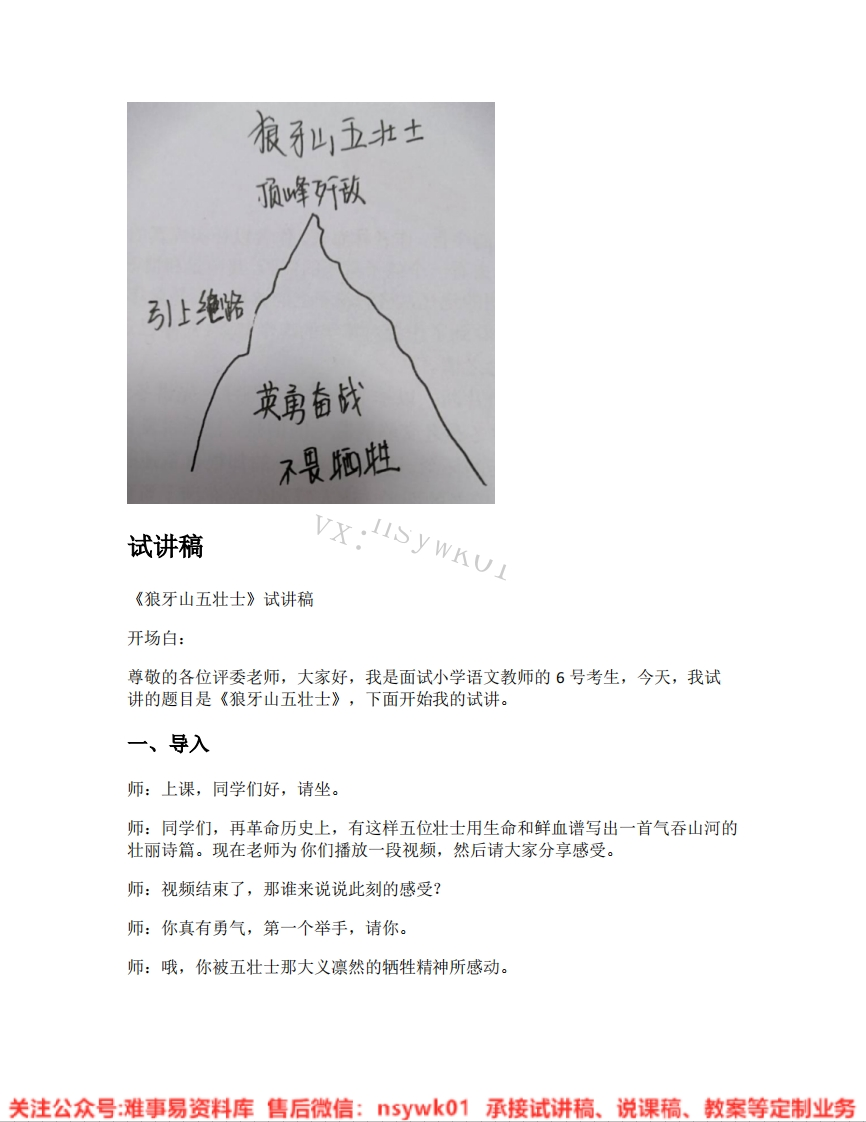 狼牙山五壮士
顶峰歼敌
引上绝路
英勇奋战
不畏牺牲
VX:nsywk01
试讲稿
《狼牙山五壮士》试讲稿
开场白：
尊敬的各位评委老师，大家好，我是面试小学语文教师的 6 号考生，今天，我试
讲的题目是《狼牙山五壮士》，下面开始我的试讲。
一、导入
师：上课，同学们好，请坐。
师：同学们，再革命历史上，有这样五位壮士用生命和鲜血谱写出一首气吞山河的
壮丽诗篇。现在老师为 你们播放一段视频，然后请大家分享感受。
师：视频结束了，那谁来说说此刻的感受？
师：你真有勇气，第一个举手，请你。
师：哦，你被五壮士那大义凛然的牺牲精神所感动。
关注公众号:难事易资料库 售后微信：nsywk01 承接试讲稿、说课稿、教案等定制业务